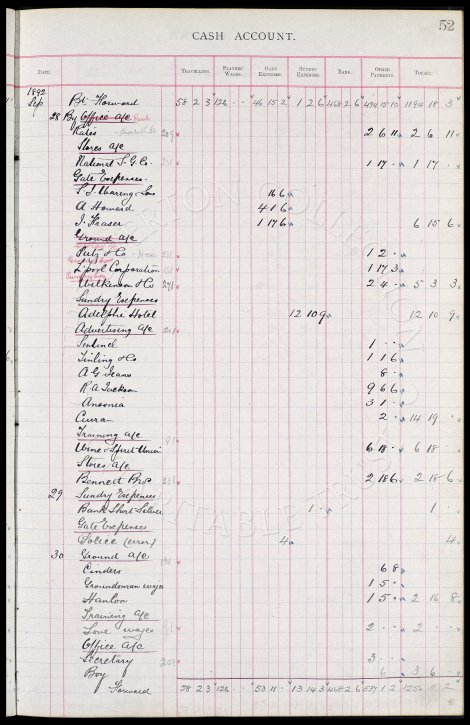 52
CASH ACCOUNT.
DATE. TRAVELLING. PLAYERS' WAGES. GATE EXPENSES. SUNDRY EXPENSES. BANK. OTHER PAYMENTS. TOTALS.
1892
Sep Bt Forward 58 2 3 126 . . 46 15 2 1 2 6 468 2 6 494 15 10 1194 18 3
28 By Office a/c
Rates 209 2 6 11 2 6 11
Stores a/c
National T. G. Co. 1 17 . 1 17 .
Gate Expenses
S. J. Waring & Son 16 6
A Howard 4 1 6
J. Fraser 1 17 6 6 15 6
Ground a/c
Lutz & Co 1 2 .
L'pool Corporation 1 17 3
Wilkinson & Co 2 4 . 5 3 3
Sundry Expenses
Adelphi Hotel 12 10 9 12 10 9
Advertising a/c
Sentinel 1 . .
Tinling & Co 1 1 6
A G Jeans 8 .
R A Jackson 9 6 6
Ansonia 3 1 .
Curran 2 . 14 19 .
Training a/c
Wine & Spirit Union 6 18 . 6 18 .
Stores a/c
Bennett Bros 211 2 18 6 2 18 6
29 Sundry Expenses
Bank Short Silver 1 . 1 .
Gate Expenses
Police (error) 4 4
30 Ground a/c
Cinders 6 8
Groundsman wages 1 5 .
Hanlon 1 5 . 2 16 8
Training a/c
Love wages 2 . . 2 . .
Office a/c
Secretary 3 . .
Boy 6 . 3 6 .
Forward 58 2 3 126 . . 53 11 . 13 14 3 468 2 6 537 1 2 1256 11 2